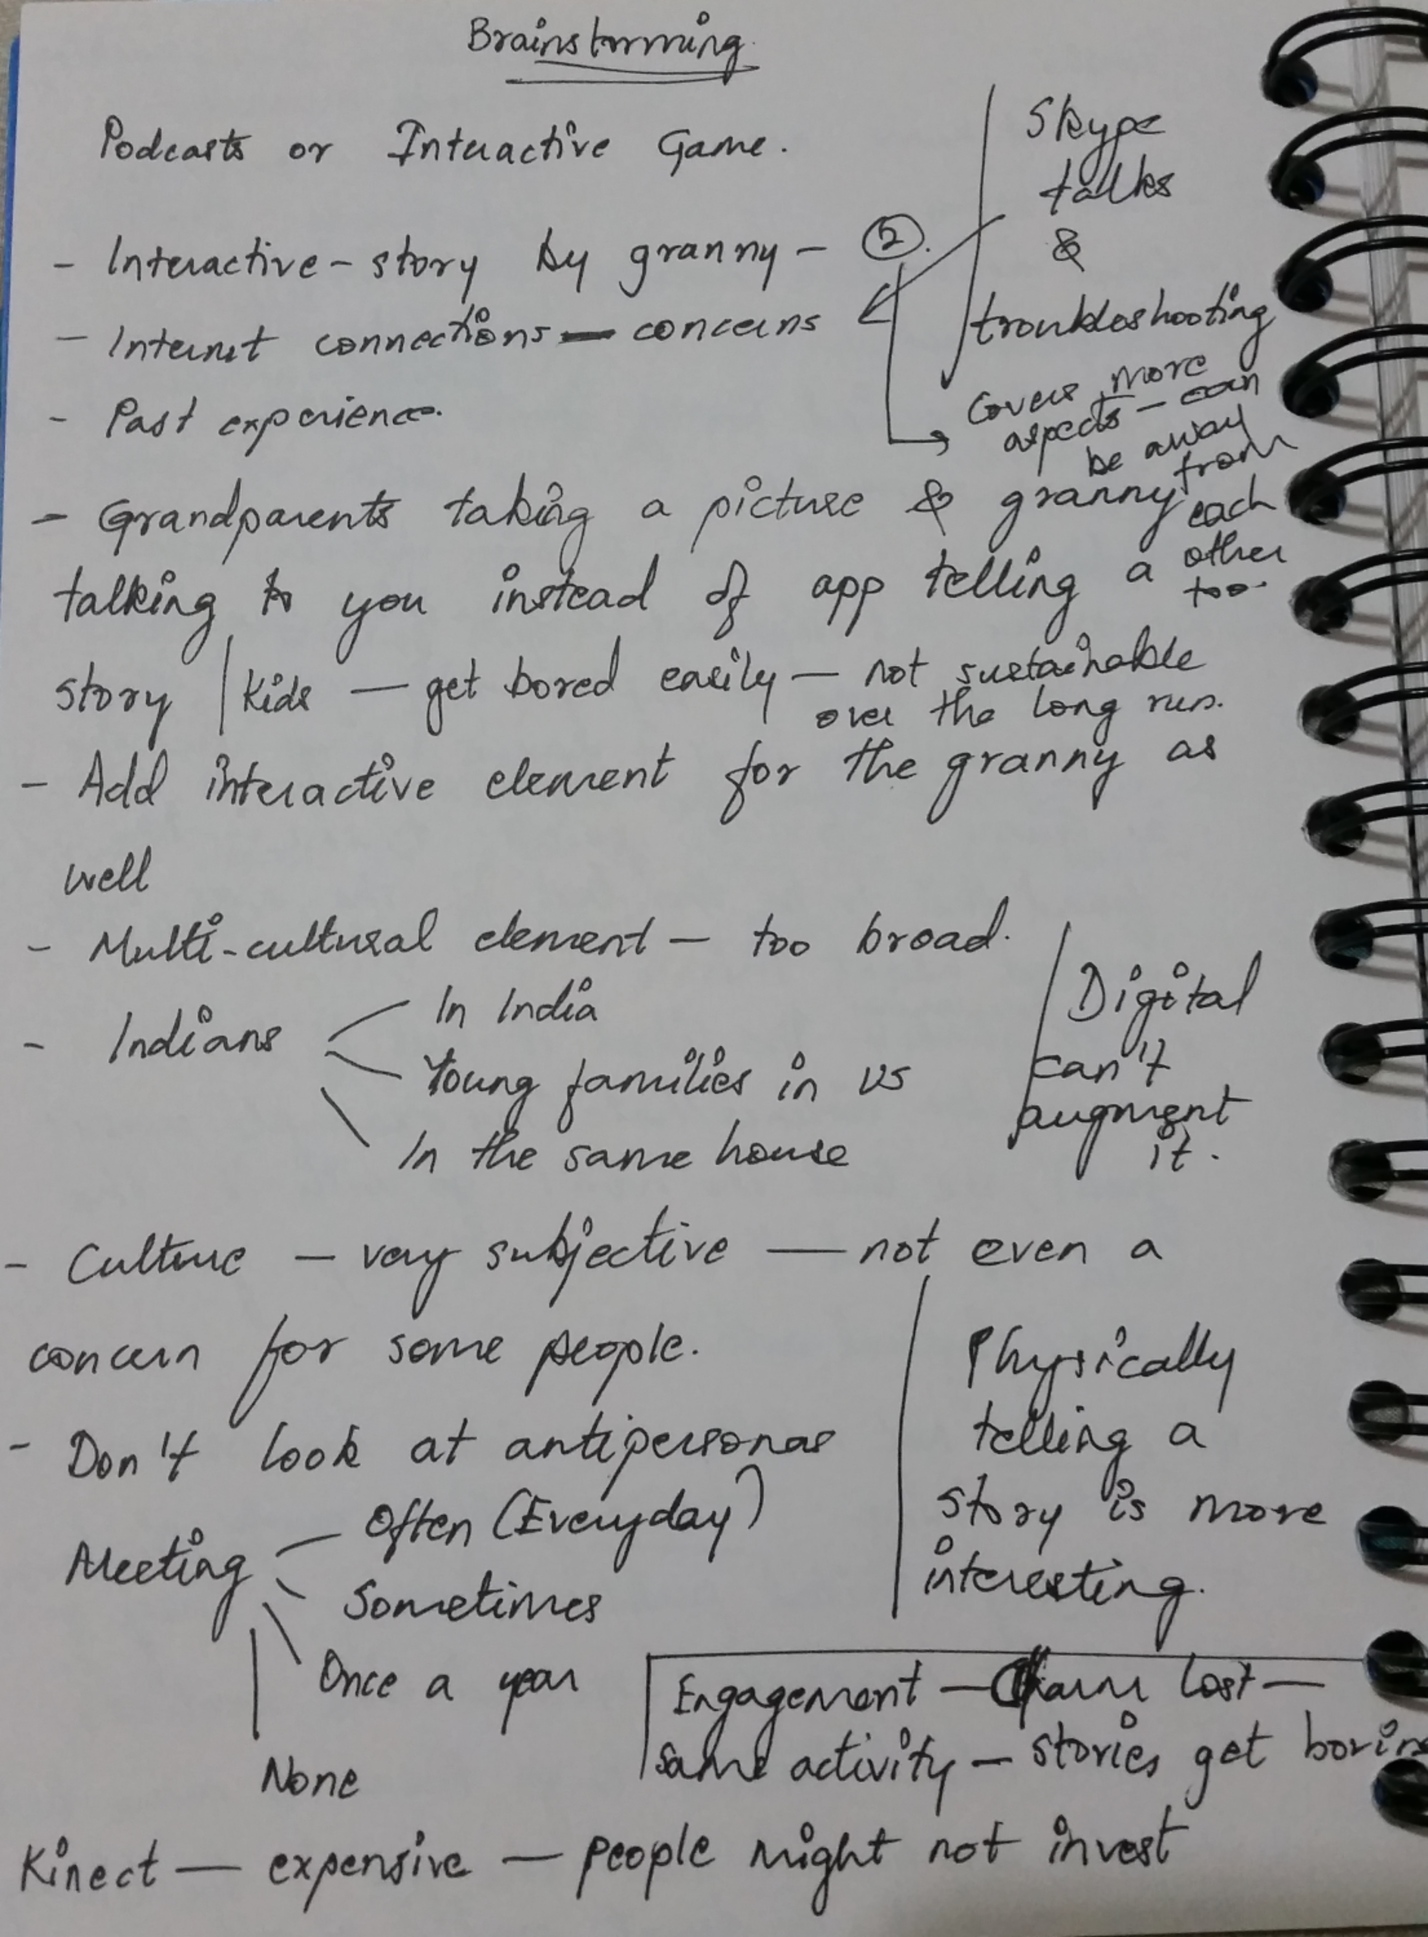 Brainstorming
Podcasts or Interactive Game.
Skype
talks
&
troubleshooting
- Interactive-story by granny - 2.
- Internet connections - concerns
- Past experience.
Covers more
aspects - can
be away
from
each
other
too.
- Grandparents taking a picture & granny
talking to you instead of app telling a
story | Kids - get bored easily - not sustainable
over the long run.
- Add interactive element for the granny as
well
- Multi-cultural element - too broad.
- Indians
In India
Young families in US
In the same house
Digital
can't
augment
it.
- Culture - very subjective - not even a
concern for some people.
- Don't look at antipersonas
Physically
telling a
story is more
interesting.
Meeting
Often (Everyday)
Sometimes
Once a year
None
Engagement - Charm lost -
same activity - stories get boring
Kinect - expensive - people might not invest